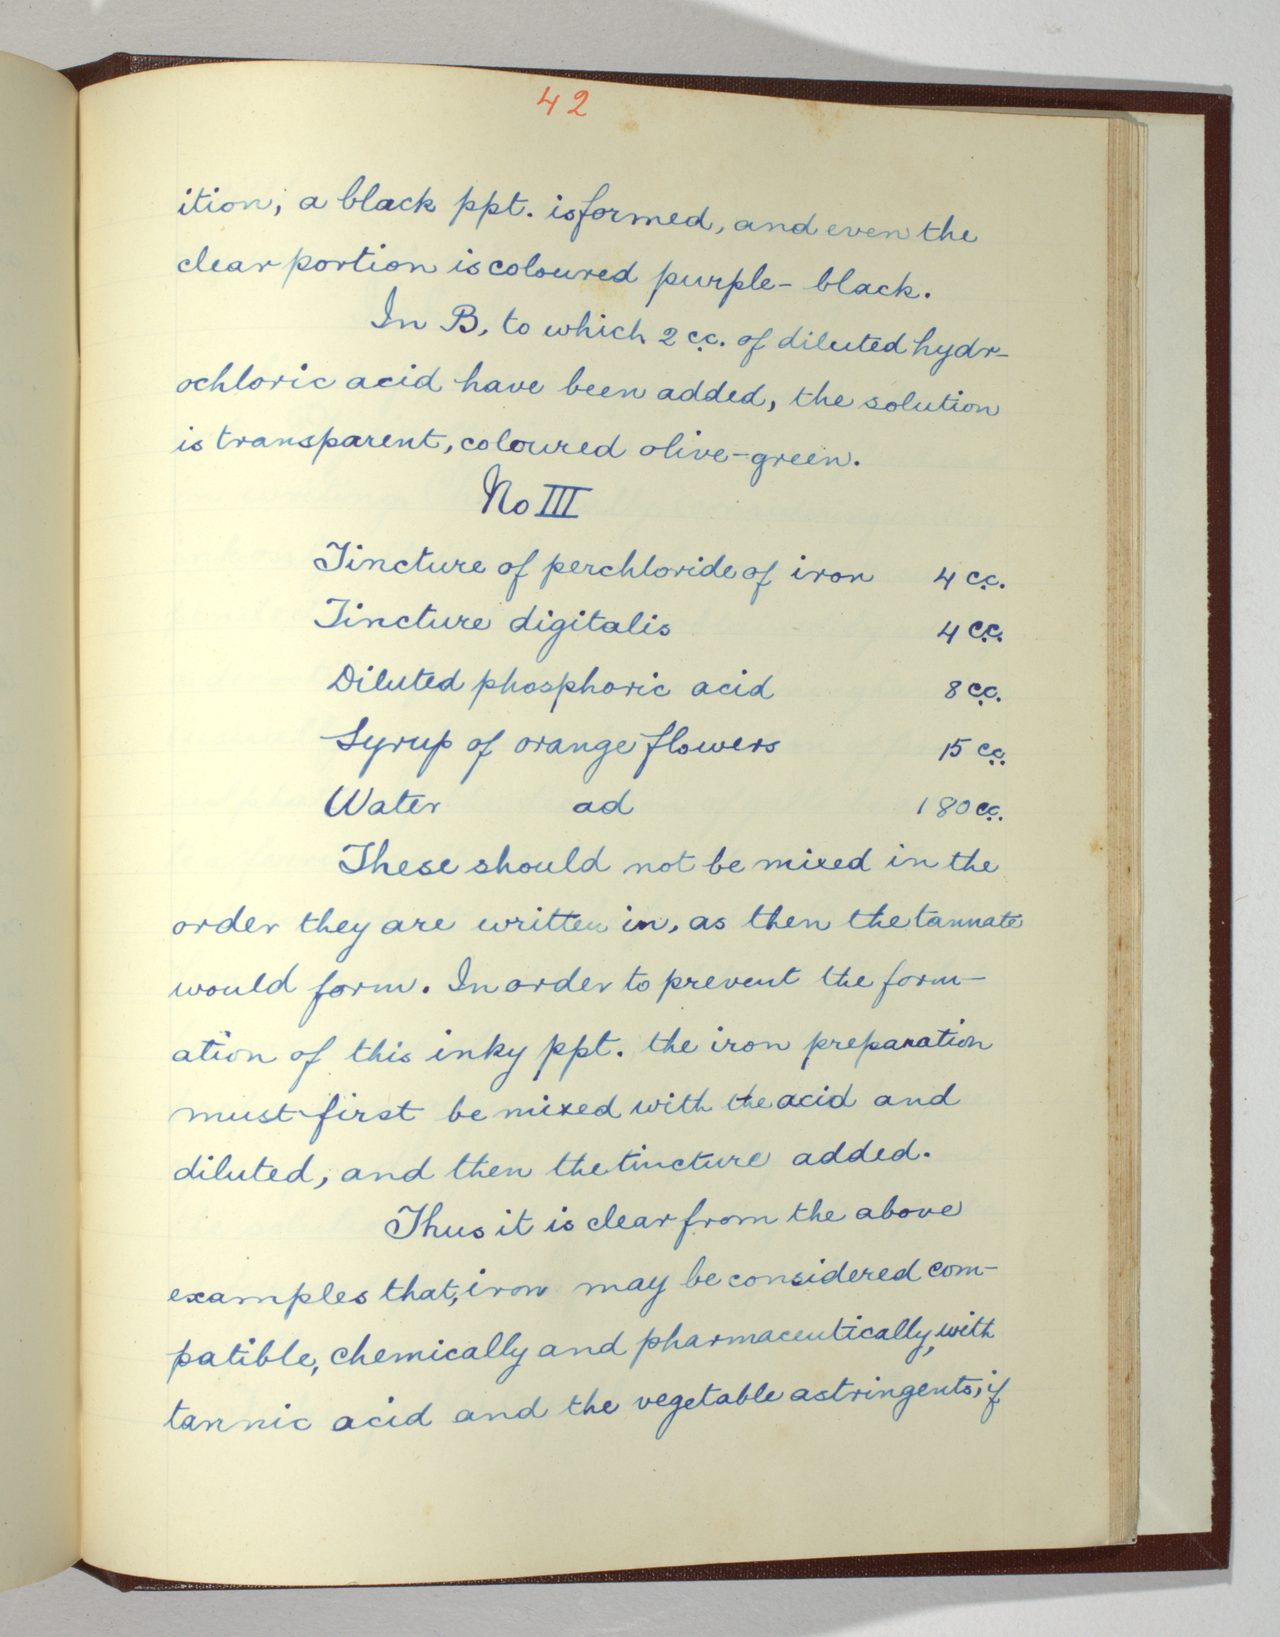 42
ition, a black ppt. is formed, and even the
clear portion is coloured purple-black.
In B, to which 2 c.c. of diluted hydr-
ochloric acid have been added, the solution
is transparent, coloured olive-green.
No III
Tincture of perchloride of iron 4 c.c.
Tincture digitalis 4 c.c.
Diluted phosphoric acid 8 c.c.
Syrup of orange flowers 15 c.c.
Water ad 180 c.c.
These should not be mixed in the
order they are written in, as then the tannate
would form. In order to prevent the form-
ation of this inky ppt. the iron preparation
must first be mixed with the acid and
diluted, and then the tincture added.
Thus it is clear from the above
examples that, iron may be considered com-
patible, chemically and pharmaceutically, with
tannic acid and the vegetable astringents, if